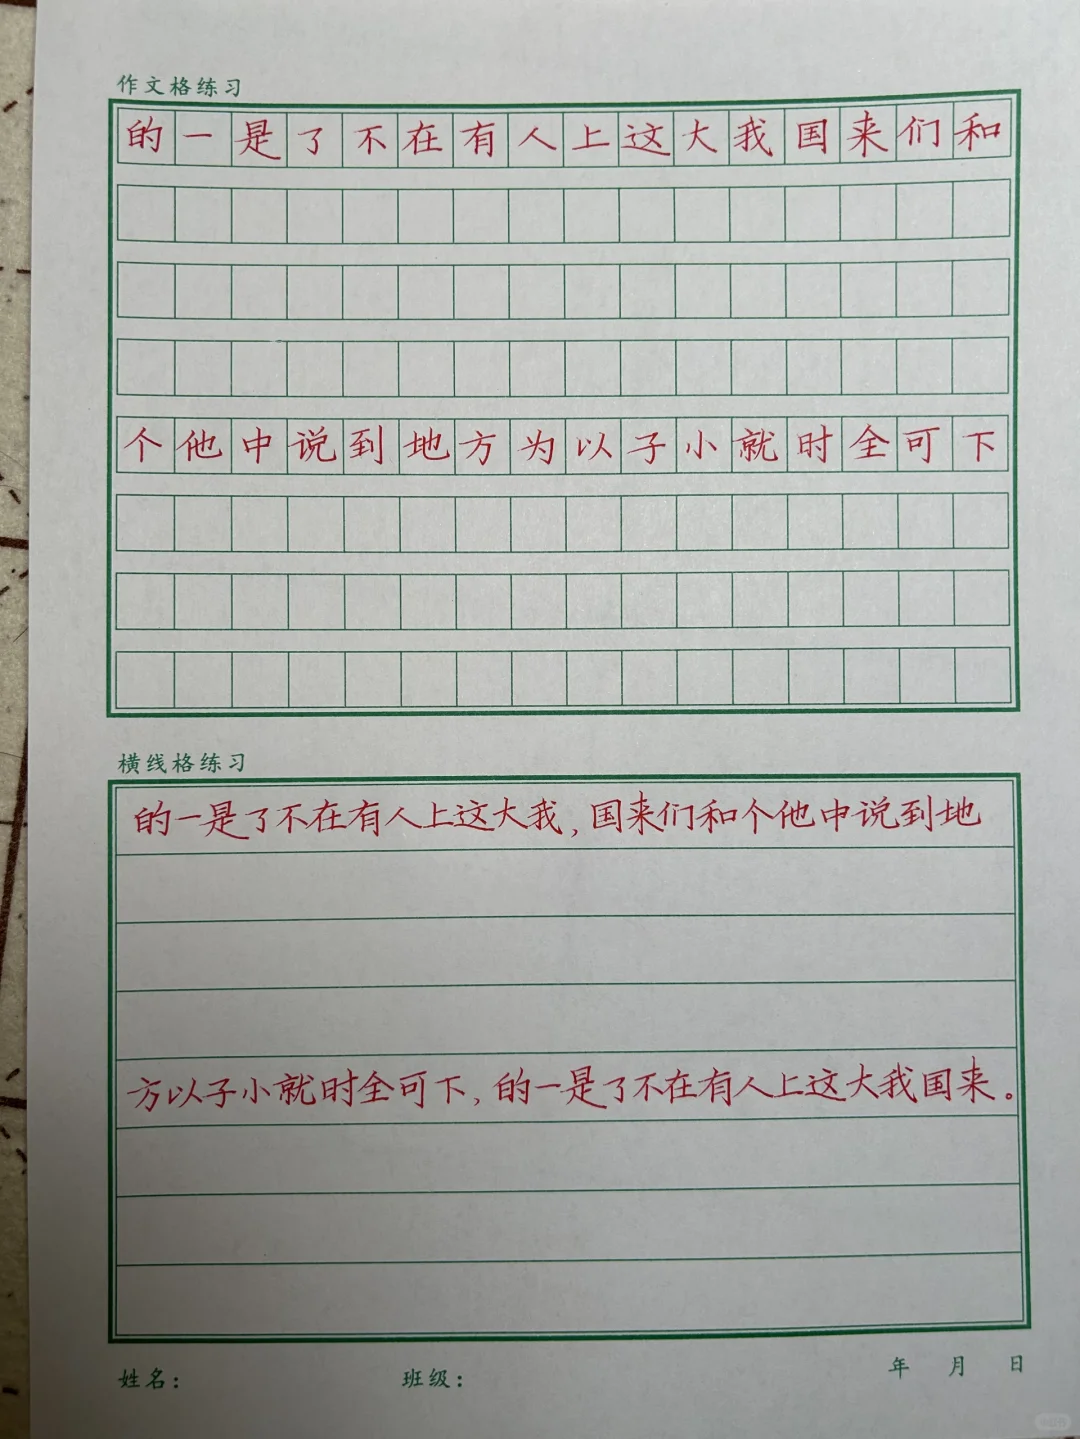 作文格练习
的一是了不在有人上这大我国来们和
个他中说到地方为以子小就时全可下
横线格练习
的一是了不在有人上这大我,国来们和个他中说到地
方以子小就时全可下,的一是了不在有人上这大我国来。
姓名: 班级: 年 月 日